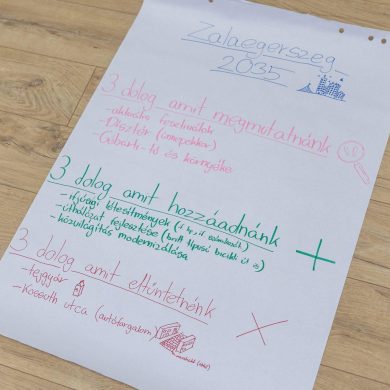 Zalaegerszeg
2035
3 dolog amit megmutatnánk
- aktuális fesztiválok
- Dísztér (ünnepekkor)
- Gébárti-tó és környéke
3 dolog amit hozzáadnánk
- ifjúsági létesítmények
- úthálózat fejlesztése típusú
- közvilágítás modernizálása
3 dolog amit eltüntetnénk
- tejgyár
- Kossuth utca (autóforgalom)